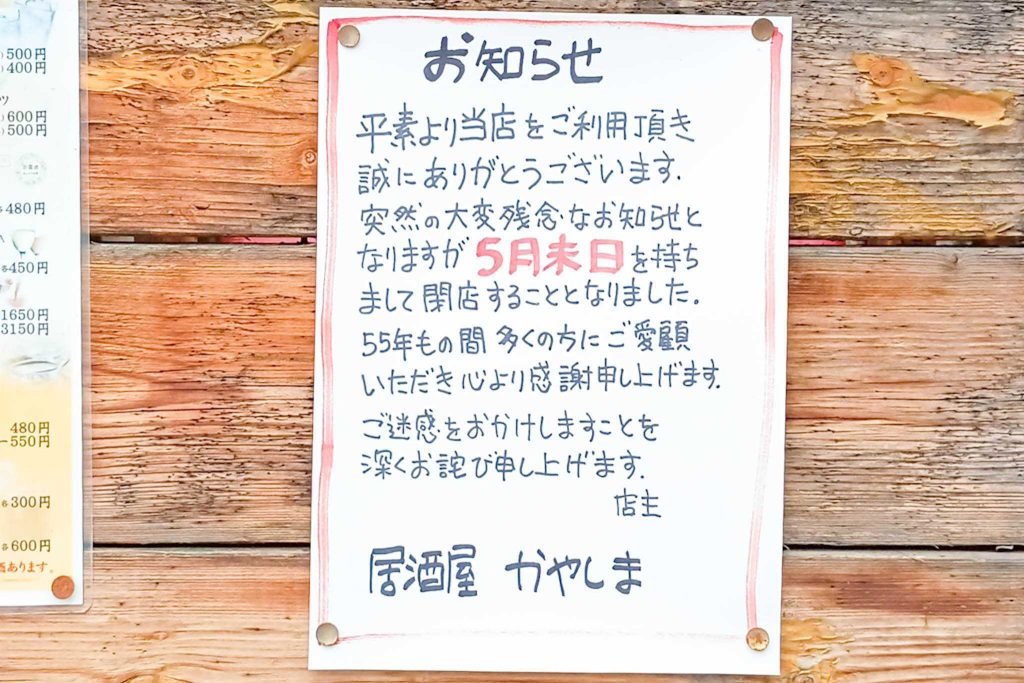 500円
400円
ツ
600円
500円
480円
各450円
1650円
3150円
480円
550円
各300円
各600円
あります。
お知らせ
平素より当店をご利用頂き
誠にありがとうございます.
突然の大変残念なお知らせと
なりますが5月末日を持ち
まして閉店することとなりました.
55年もの間多くの方にご愛顧
いただき心より感謝申し上げます.
ご迷惑をおかけしますことを
深くお詫び申し上げます.
店主
居酒屋 かやしま